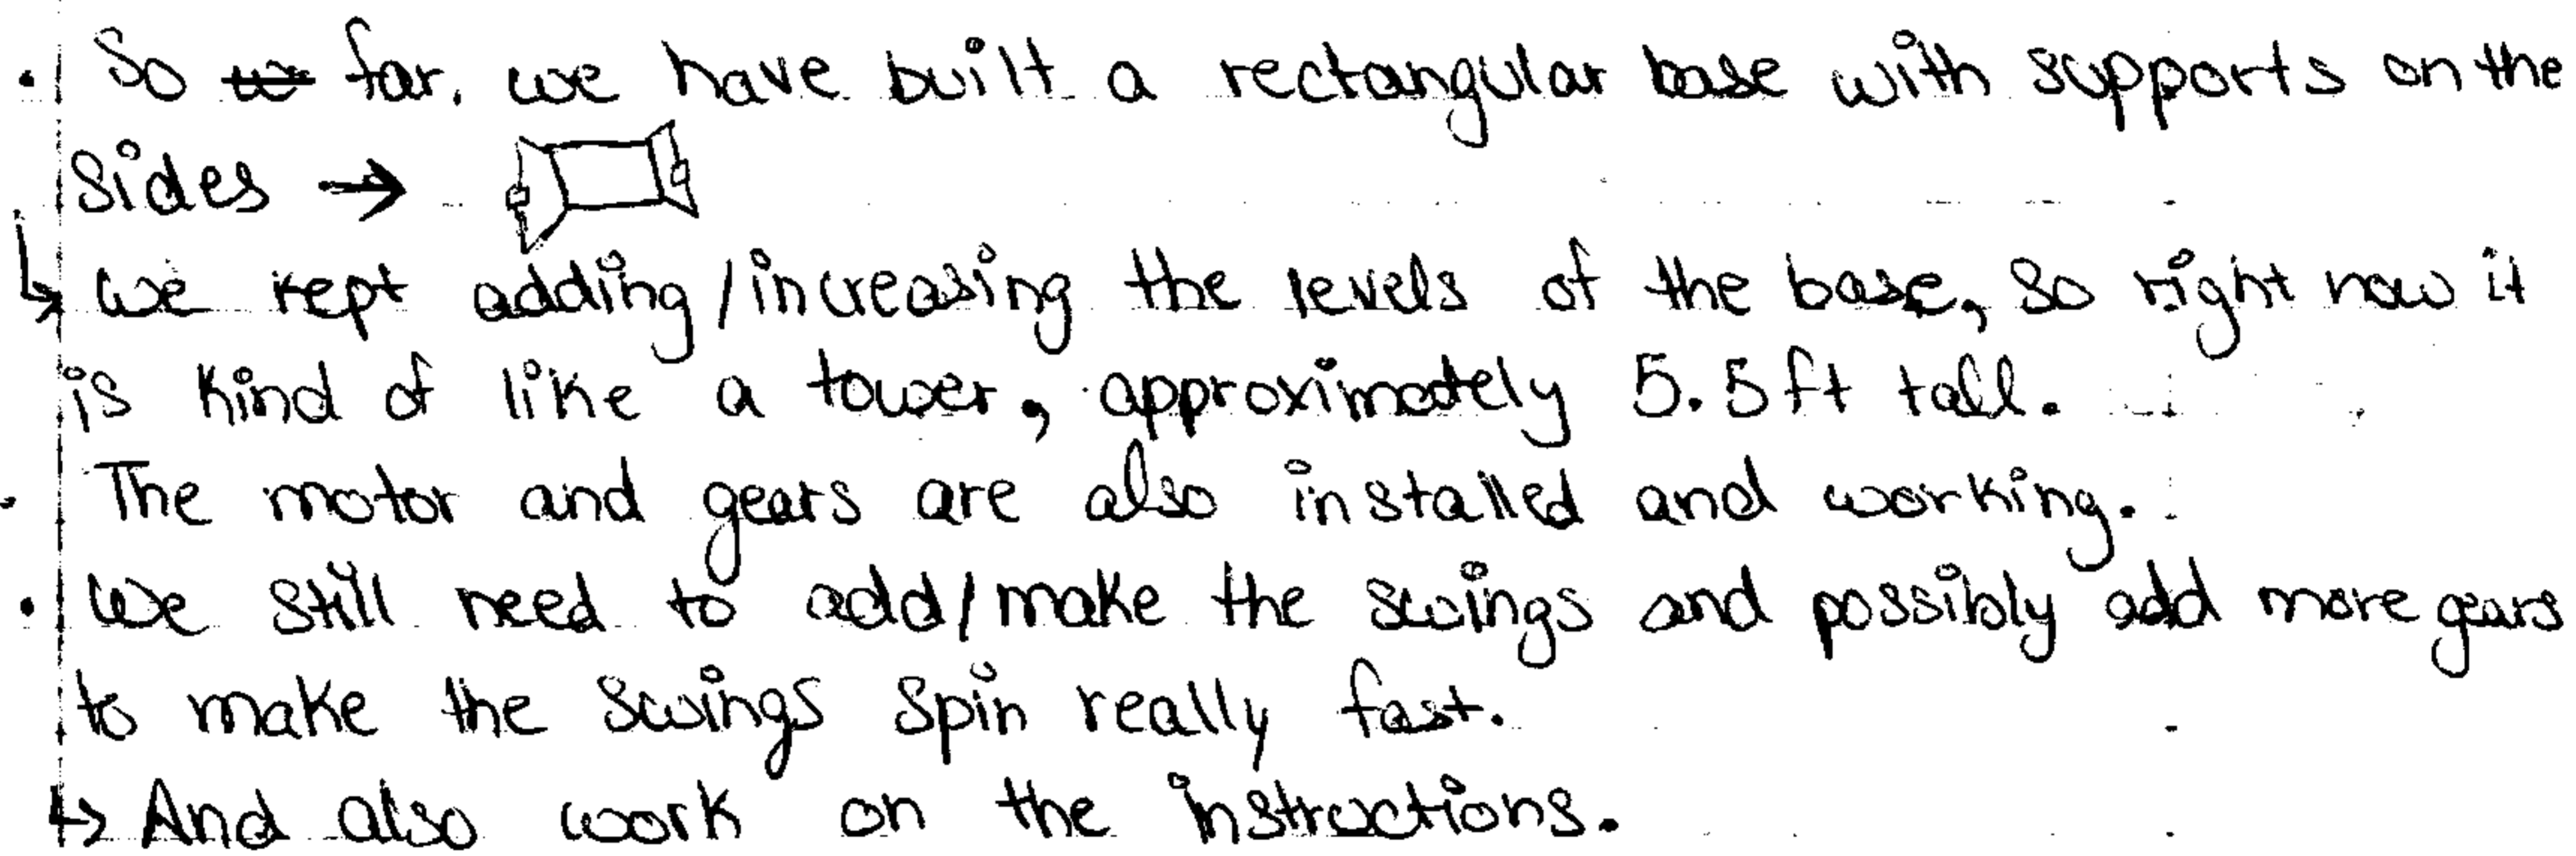 • So we far, we have built a rectangular base with supports on the
sides →
↳ we kept adding/increasing the levels of the base, so right now it
is kind of like a tower, approximately 5.5ft tall.
• The motor and gears are also installed and working.
• We still need to add/make the swings and possibly add more gears
to make the swings spin really fast.
↳ And also work on the instructions.